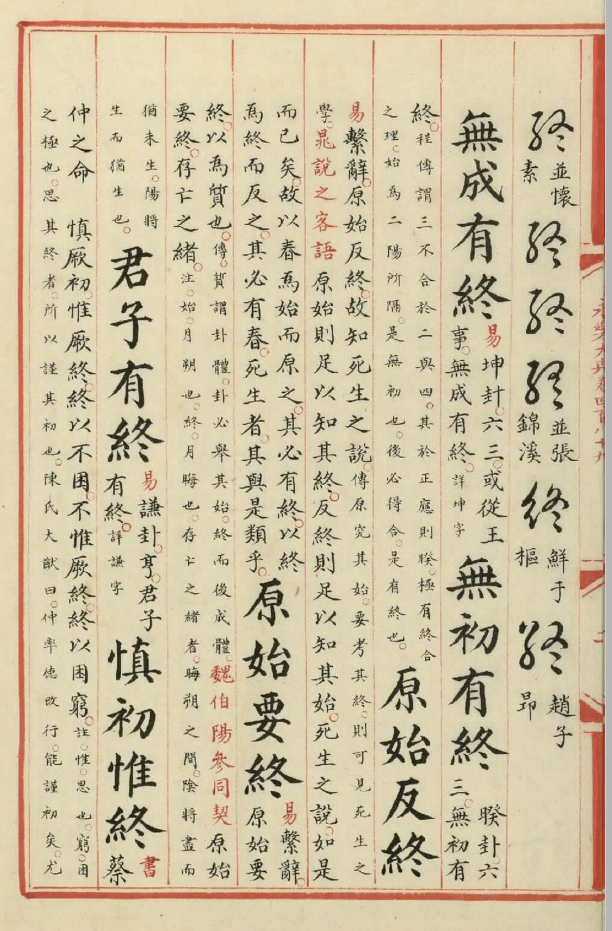 終並懷素終終終並張錦溪終鮮于樞終趙子昂
無成有終易坤卦。六三。或從王事。無成有終。詳坤字無初有終睽卦六三。無初有
終。程傳謂三不合於二與四。其於正應則睽。極有終合
之理。始為二陽所隔。是無初也。後必得合。是有終也。原始反終
易繫辭。原始反終。故知死生之說。傳原究其始。要考其終。則可見死生之
學。晁說之客語原始則足以知其終。反終則足以知其始。死生之說。如是
而已矣。故以春為始而原之。其必有終。以終
為終而反之。其必有春。死生者。其與是類乎。原始要終易繫辭。原始要
終。以為質也。傳。質謂卦體。卦必舉其始終而後成體。魏伯陽參同契原始
要終。存亡之緒。注。始。月朔也。終。月晦也。存亡之緒者。晦朔之間。陰將盡而
猶未生。陽將
生而猶生也。君子有終易謙卦。亨。君子有終。詳謙字慎初惟終書蔡
仲之命慎厥初。惟厥終。終以不困。不惟厥終。終以困窮。註。惟。思也。窮。困
之極也。思其終者。所以謹其初也。陳氏大猷曰。仲率德改行。能謹初矣。尤